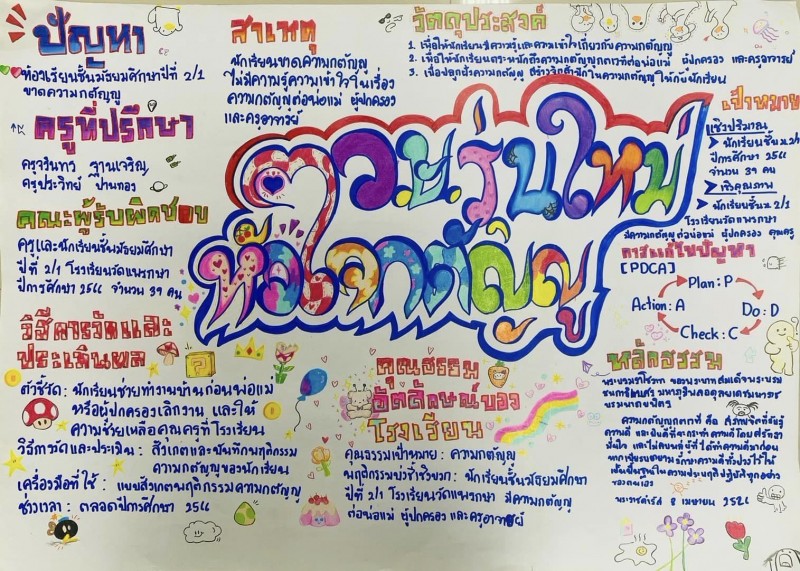 ปัญหา
ห้องเรียนชั้นมัธยมศึกษาปีที่ 2/1
ขาดความกตัญญู
ครูที่ปรึกษา
ครูประวิทย์ ปานทอง
คณะผู้รับผิดชอบ
ครูและนักเรียนชั้นมัธยมศึกษา
ปีที่ 2/1 โรงเรียนวัดแพรกษา
ปีการศึกษา 2566 จำนวน 39 คน
วิธีการวัดและ
ประเมินผล
ตัวชี้วัด : นักเรียนช่วยทำงานบ้านก่อนพ่อแม่
หรือผู้ปกครองเลิกงาน และให้
ความช่วยเหลือคุณครูที่โรงเรียน
วิธีการวัดและประเมิน : สังเกตและบันทึกพฤติกรรม
ความกตัญญูของนักเรียน
เครื่องมือที่ใช้ : แบบสังเกตพฤติกรรมความกตัญญู
ช่วงเวลา : ตลอดปีการศึกษา 2566
สาเหตุ
นักเรียนขาดความกตัญญู
ไม่มีความรู้ความเข้าใจในเรื่อง
ความกตัญญูต่อพ่อแม่ ผู้ปกครอง
และครูอาจารย์
วัตถุประสงค์
1. เพื่อให้นักเรียนมีความรู้และความเข้าใจเกี่ยวกับความกตัญญู
2. เพื่อให้นักเรียนตระหนักถึงความกตัญญูกตเวทีต่อพ่อแม่ ผู้ปกครอง และครูอาจารย์
3. เพื่อปลูกฝังความกตัญญู สร้างจิตสำนึกในความกตัญญูให้กับนักเรียน
ว.ย.รุ่นใหม่
หัวใจกตัญญู
เป้าหมาย
เชิงปริมาณ
นักเรียนชั้นม.2/1
ปีการศึกษา 2566
จำนวน 39 คน
เชิงคุณภาพ
นักเรียนชั้นม 2/1
โรงเรียนวัดแพรกษา
มีความกตัญญูต่อพ่อแม่ ผู้ปกครอง คุณครู
การแก้ไขปัญหา
[PDCA]
Plan : P
Do : D
Check : C
Action : A
คุณธรรม
อัตลักษณ์ของ
โรงเรียน
คุณธรรมเป้าหมาย : ความกตัญญู
พฤติกรรมบ่งชี้เชิงบวก : นักเรียนชั้นมัธยมศึกษา
ปีที่ 2/1 โรงเรียนวัดแพรกษา มีความกตัญญู
ต่อพ่อแม่ ผู้ปกครอง และครูอาจารย์
หลักธรรม
ความกตัญญูกตเวที คือ สภาพจิตที่รับรู้
ความดี
พระราชดำรัส 8 เมษายน 2526